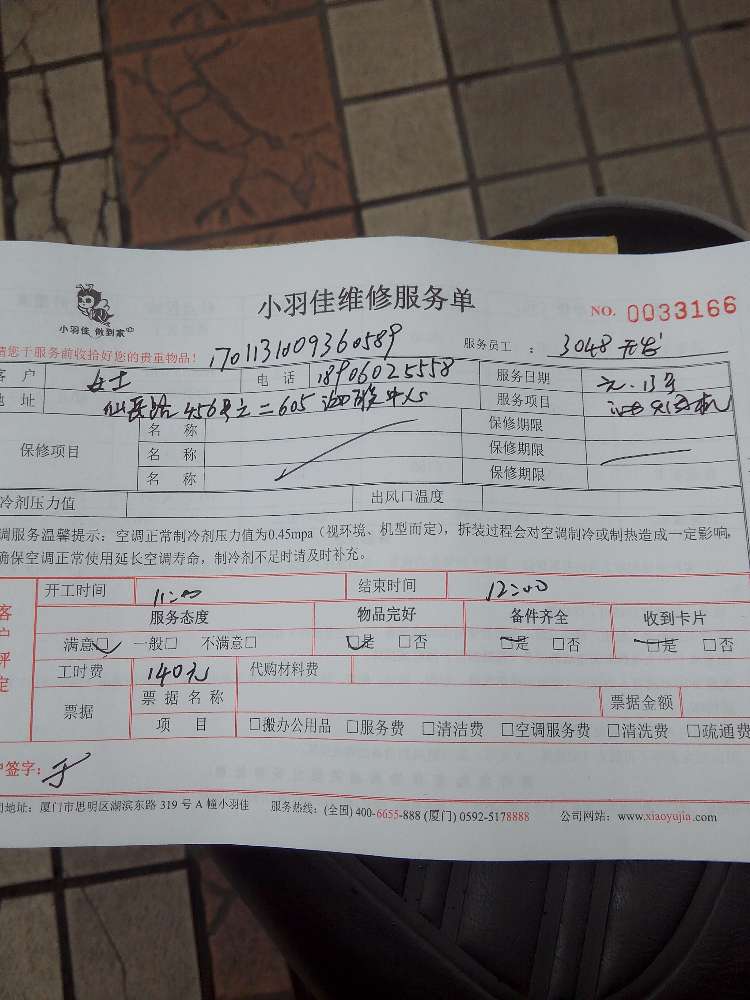 小羽佳 做到家
小羽佳维修服务单
NO. 0033166
请您于服务前收拾好您的贵重物品! 1701131009360589 服务员工 : 3048
客 户 女士 电 话 18906025558 服务日期 元.13号
地 址 仙岳路456号之二605 服务项目
保修项目 名 称 保修期限
名 称 保修期限
名 称 保修期限
冷剂压力值 出风口温度
调服务温馨提示: 空调正常制冷剂压力值为0.45mpa (视环境、机型而定), 拆装过程会对空调制冷或制热造成一定影响,
确保空调正常使用延长空调寿命, 制冷剂不足时请及时补充。
客户评定
开工时间 11:00 结束时间 12:00
服务态度 物品完好 备件齐全 收到卡片
满意□ 一般□ 不满意□ □是 □否 □是 □否 □是 □否
工时费 140元 代购材料费
票据 票 据 名 称 票据金额
项 目 □搬办公用品 □服务费 □清洁费 □空调服务费 □清洗费 □疏通费
户签字: 于
司地址: 厦门市思明区湖滨东路 319 号 A 幢小羽佳 服务热线: (全国) 400-6655-888 (厦门) 0592-5178888 公司网站: www.xiaoyujia.com